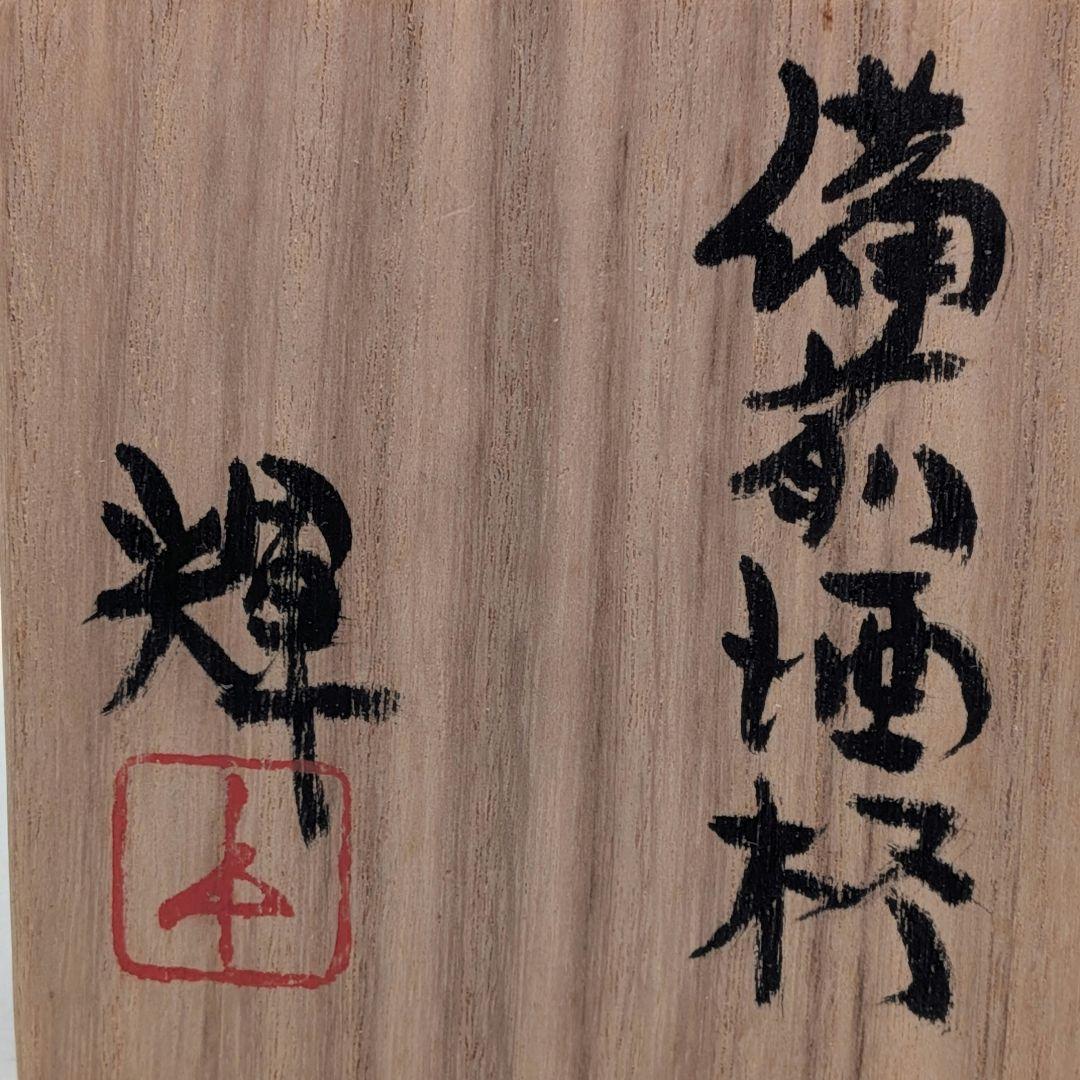 備前酒杯
輝